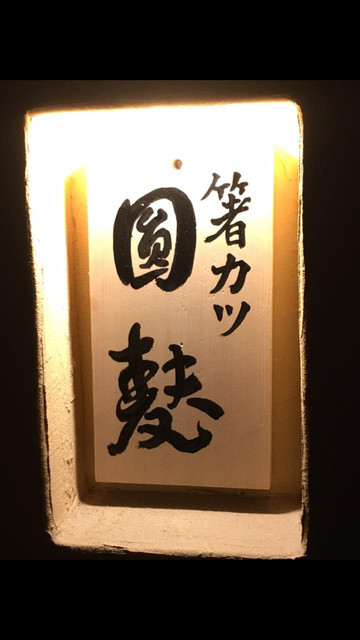 箸カツ
圓麩